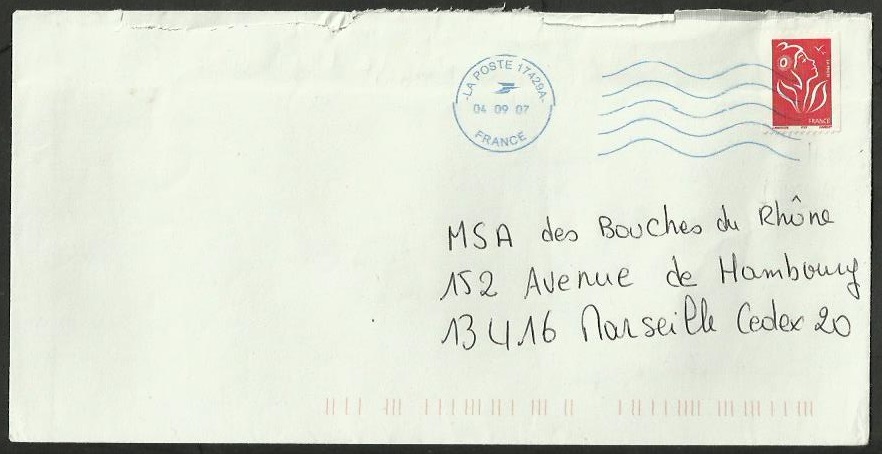 LA POSTE 17429A
04 09 07
FRANCE
FRANCE
MSA des Bouches du Rhône
152 Avenue de Hambourg
13416 Marseille Cedex 20